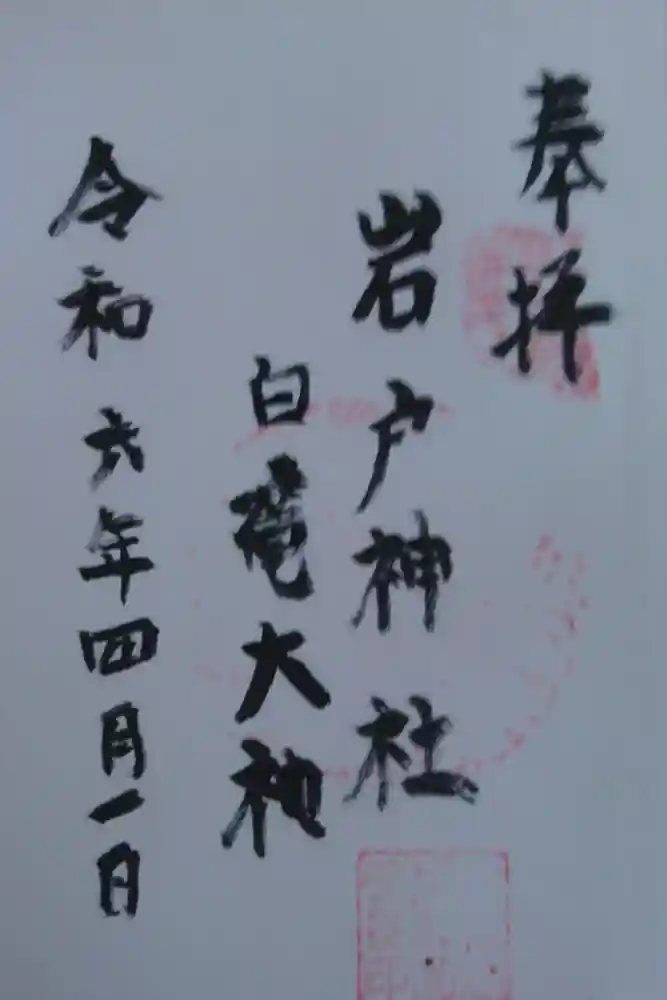 奉拝
岩戸神社
白竜大神
令和六年四月一日